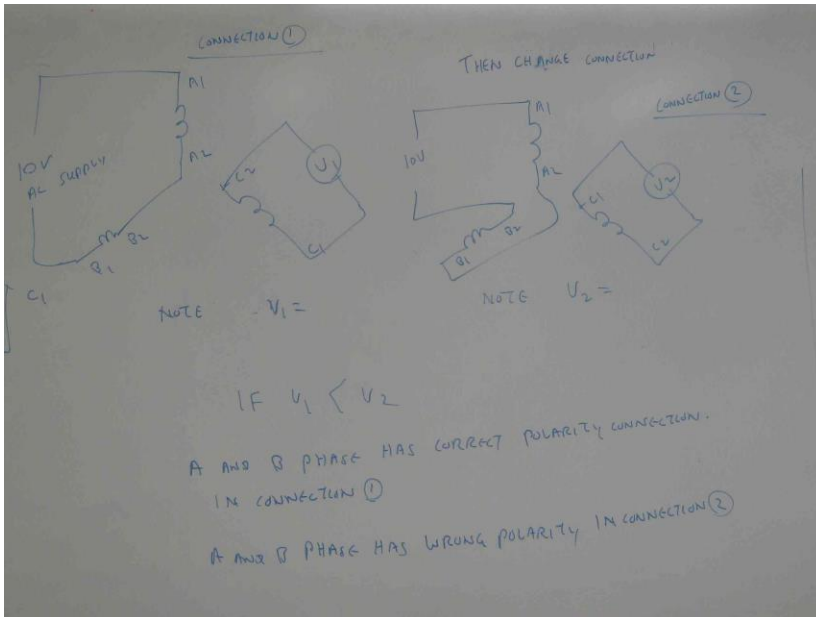 CONNECTION 1
A1
A2
10V
AC SUPPLY
B2
B1
C1
C2
V1
C1
NOTE V1 =
THEN CHANGE CONNECTION
CONNECTION 2
A1
10V
A2
B2
B1
C1
V2
C2
NOTE V2 =
IF V1 < V2
A AND B PHASE HAS CORRECT POLARITY CONNECTION.
IN CONNECTION 1
A AND B PHASE HAS WRONG POLARITY IN CONNECTION 2